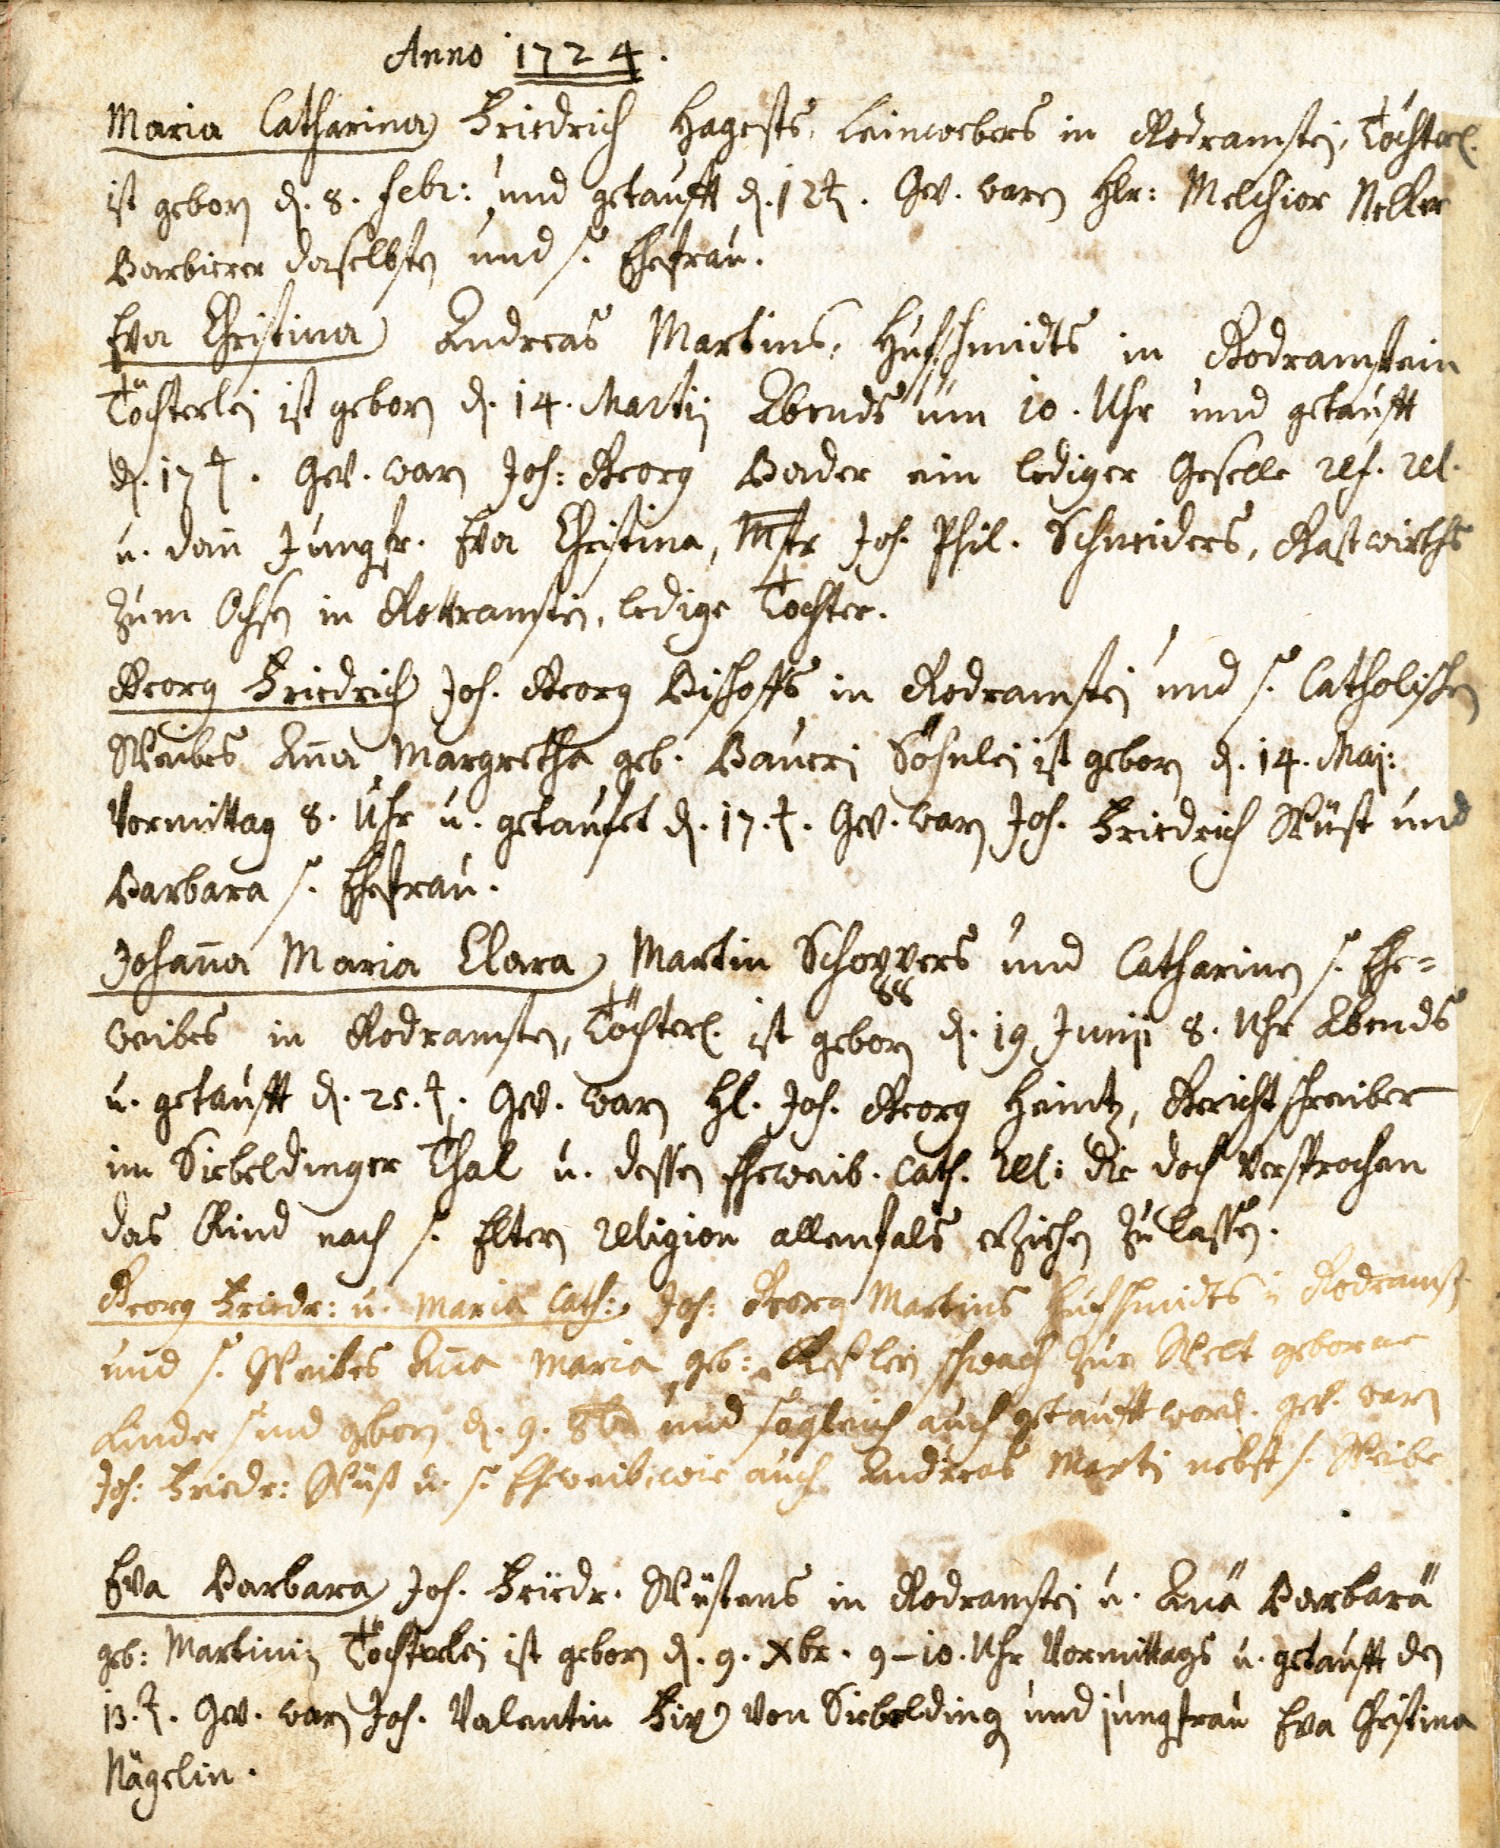 Anno 1724.
Maria Catharina Friedrich Hagests, Leinwebers in Rodramstein, Töchterl.
ist geborn d. 8. Febr: und getaufft d. 12t. Gev. waren Hr: Melchior
Barbierer daselbsten und s. Ehefrau.
Eva Christina Andreas Martins, Hufschmidts in Godramstein
Töchterlein ist geborn d. 14. Martij Abends um 10. Uhr und getaufft
d. 17t. Gev. warn Joh: Georg Bader ein lediger Geselle ref. rel.
u. dann Jungfr. Eva Christina, Mstr Joh. Phil. Schneiders, Gastwirths
zum Ochsen in Gottramstein, ledige Tochter.
Georg Friedrich Joh. Georg Bischoffs in Godramstein und s. Catholischen
Weibes Anna Margretha geb. Bauerin Söhnlein ist geborn d. 14. Maj:
Vormittag 8. Uhr u. getaufet d. 17.t. Gev. warn Joh. Friedrich Wüst und
Barbara s. Ehefrau.
Johanna Maria Clara Martin Schoppers und Catharinen s. Ehe=
weibes in Godramstein, Töchterl. ist geborn d. 19 Junij 8. Uhr Abends
u. getaufft d. 25.t. Gev. warn H. Joh. Georg Heintz, Gerichtschreiber
im Siebeldinger Thal u. dessen Eheweib. Cath. Rel: die doch versprochen
das Kind nach s. Eltern religion allenfals erziehen zu lassen.
Georg Friedr: u. Maria Cath: Joh: Georg Martins Hufschmidts in Godramst.
und s. Weibes Anna Maria, geb: schwach zur Welt geborne
Kinder sind geborn d. 9. 8br und sogleich auch getaufft word. gev. warn
Joh: Friedr: Wüst u. s. Eheweib, wie auch Andreas Martin nebst s. Weibe
Eva Barbara Joh. Friedr. Wüstens in Godramstein u. Annä Barbarä
geb: Martinin Töchterlein ist geborn d. 9. Xbr. 9–10. Uhr Vormittags u. getaufft den
13.t. Gev. warn Joh. Valentin von Siebelding und jungfrau Eva Christina
Nägelin.